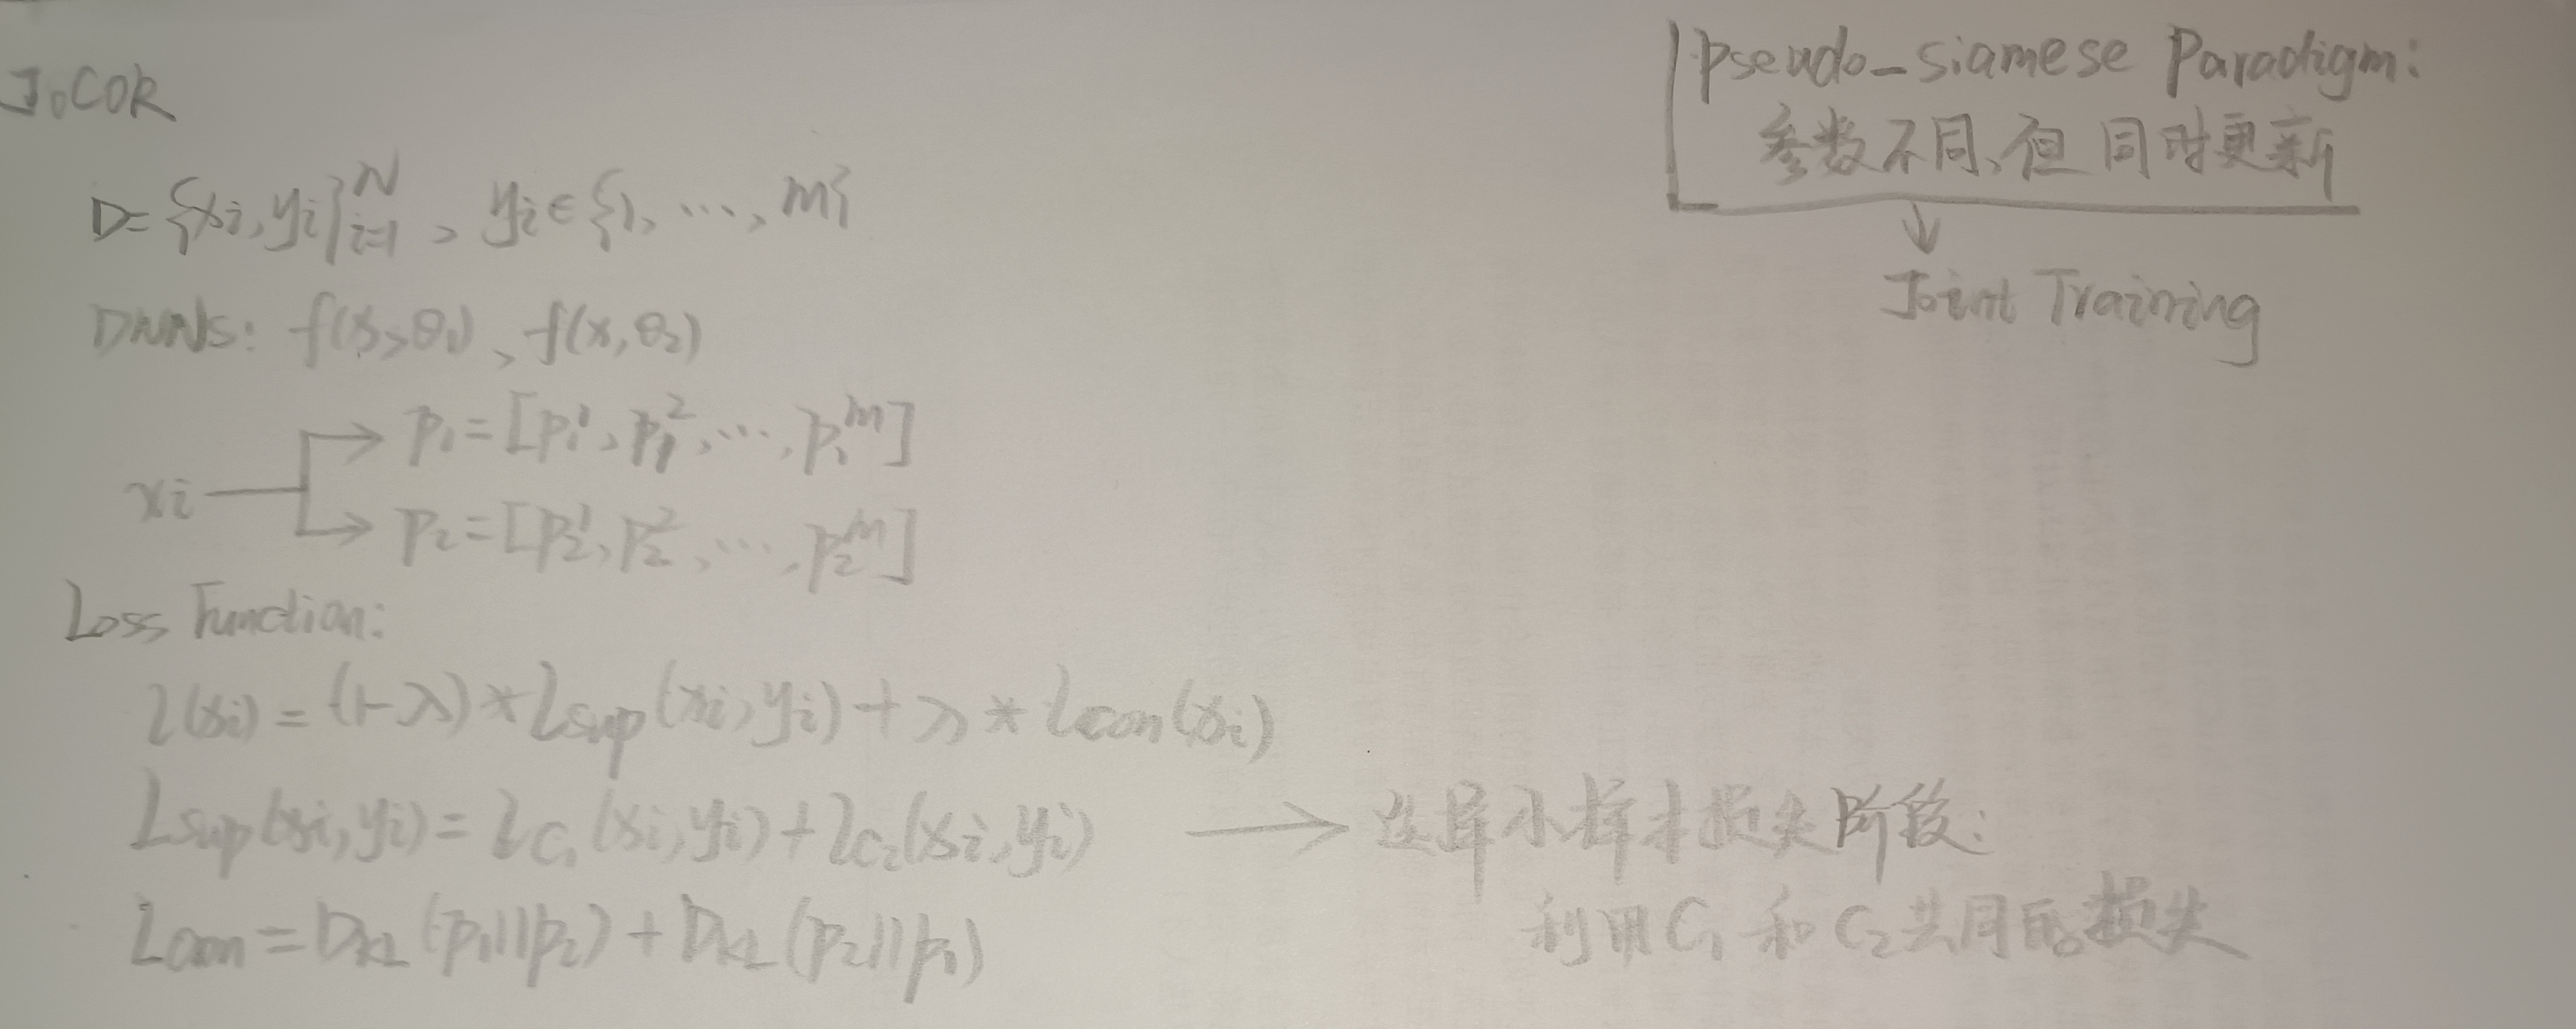 JoCOR
D={xi,yi}ᴺᵢ₌₁, yi∈{1, ..., m}
DNNs: f(x,θ₁), f(x,θ₂)
xi → p₁=[p₁¹, p₁², ..., p₁ᵐ]
→ p₂=[p₂¹, p₂², ..., p₂ᵐ]
Loss Function:
l(xi) = (1-λ)*Lsup(xi,yi)+λ*Lcon(xi)
Lsup(xi,yi)=lc₁(xi,yi)+lc₂(xi,yi) → 选择小样本损失阶段:
利用C₁和C₂共同的损失
Lcon=DKL(p₁||p₂)+DKL(p₂||p₁)
pseudo-siamese Paradigm:
参数不同,但同时更新
↓
Joint Training